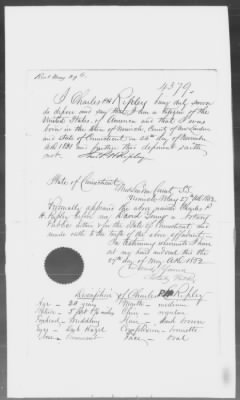 Recd May 29th
4379.
I Charles H Ripley being duly sworn
do depose and say that I am a citizen of the
United States of America and that I was
born in the town of Norwich, County of New London
and State of Connecticut, on 24th of November
A.D. 1831 and further this deponent saith
not. Chas H Ripley
State of Connecticut
New London County SS.
Norwich May 27th A.D. 1852
Personally appeared the above named Charles
H. Ripley before me David Young a Notary
Public within & for the State of Connecticut and
made oath to the truth of the above affidavit.
In testimony whereof I have
set my hand and seal this the
27th day of May A.D. 1852
David Young
Notary Public
Description of Charles H Ripley
Age - 20 years Mouth - medium
Stature - 5 feet Chin - regular
Forehead - Middling Hair - dark brown
Eyes - Dark Hazel Complexion - brunette
Nose - prominent Face - oval